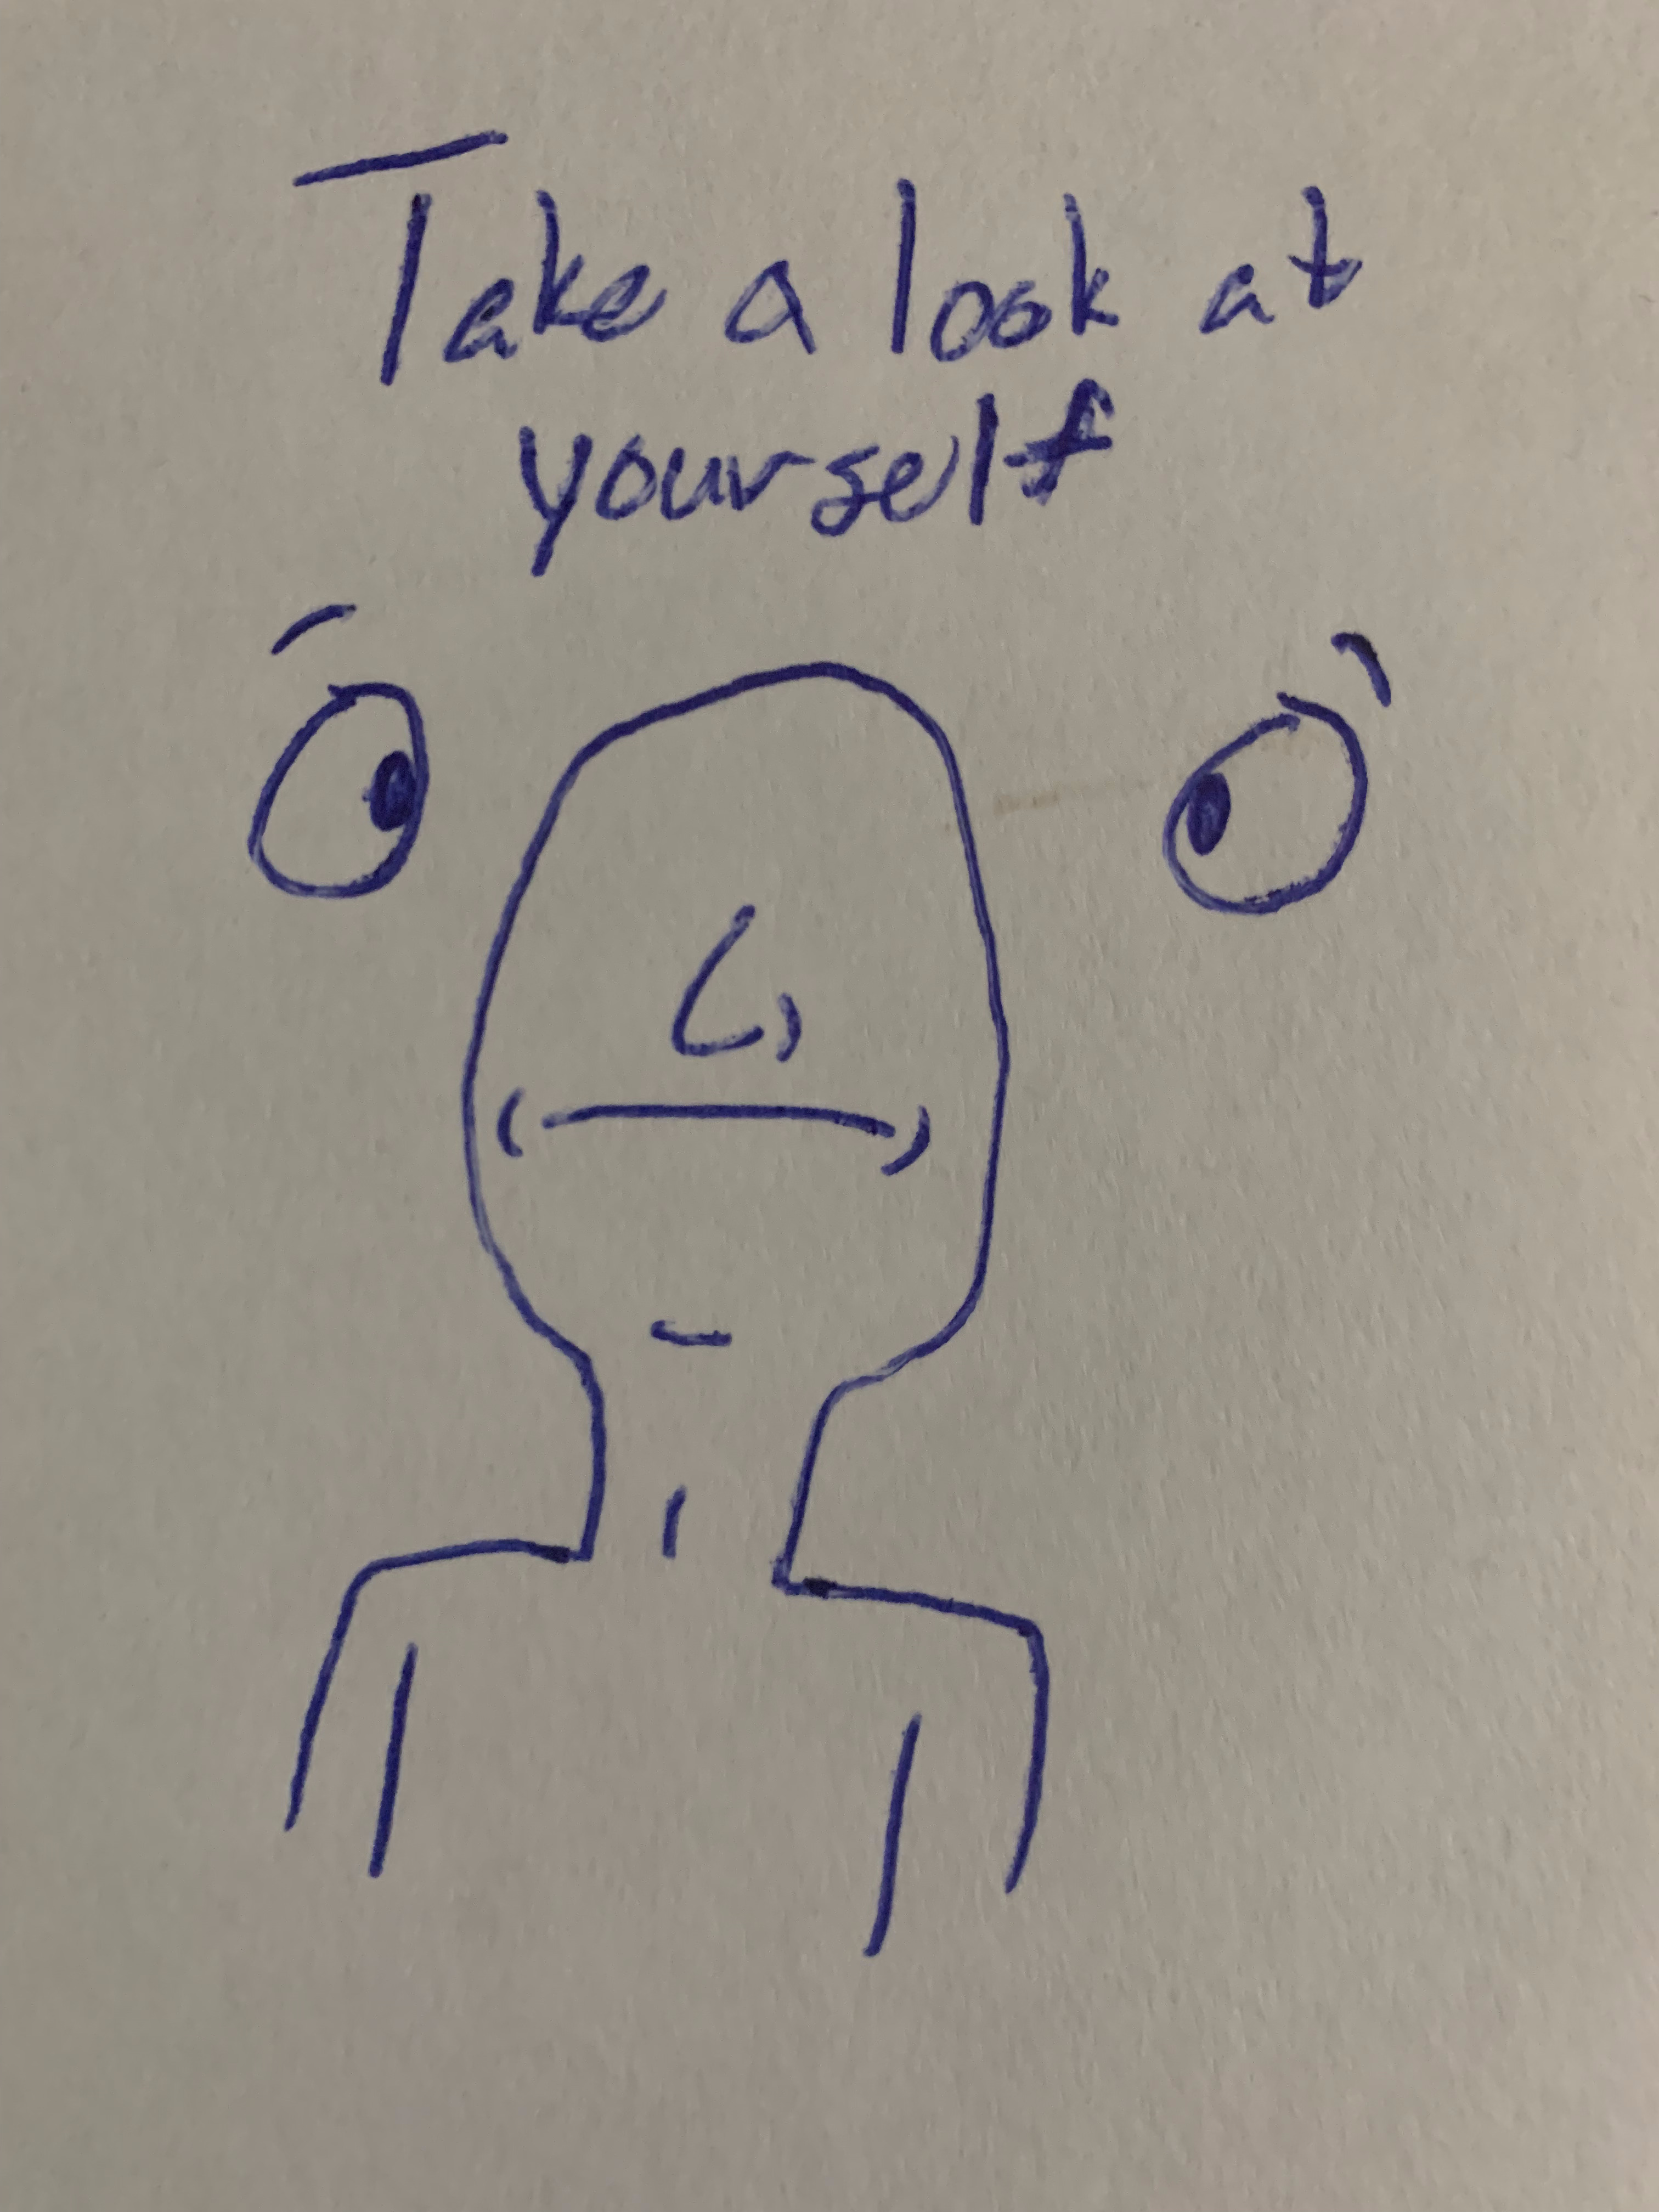 Take a look at
yourself